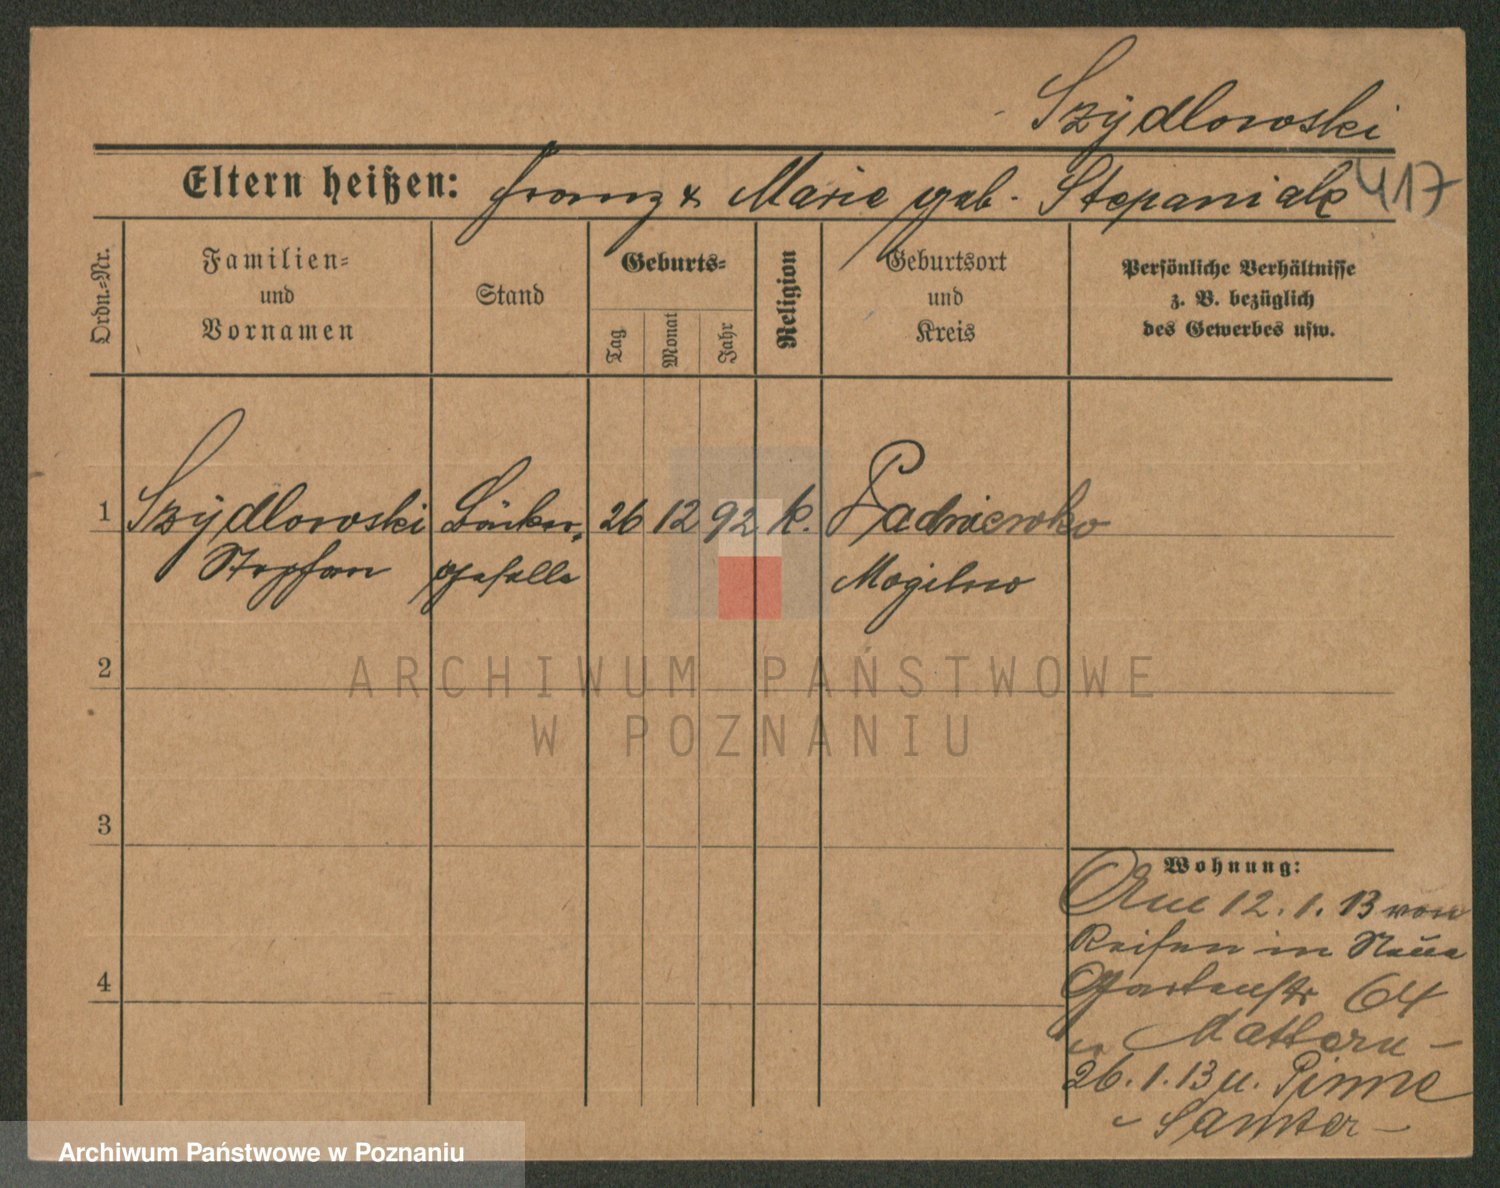 Szÿdlowski
Eltern heißen: Franz & Marie geb. Stepaniak 417
Ordn.-Nr.
Familien-
und
Vornamen
Stand
Geburts-
Tag
Monat
Jahr
Religion
Geburtsort
und
Kreis
Persönliche Verhältnisse
z. B. bezüglich
des Gewerbes usw.
1 Szÿdlowski Bäcker- 26 12 92 k. Padniewko
Stephan geselle Mogilno
2
ARCHIWUM PAŃSTWOWE
W POZNANIU
3
Wohnung:
Am 12.1.13 von
Reisen in Neue
4
Gartenstr 64
Mattern -
26.1.13 u. Pinne
- Samter -
Archiwum Państwowe w Poznaniu